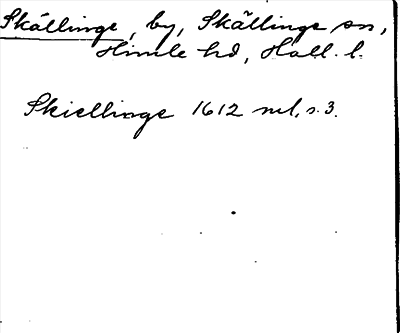 Skällinge, by, Skällinge sn,
Himle hd, Hall. l.
Skiellinge 1612 ml, s. 3.